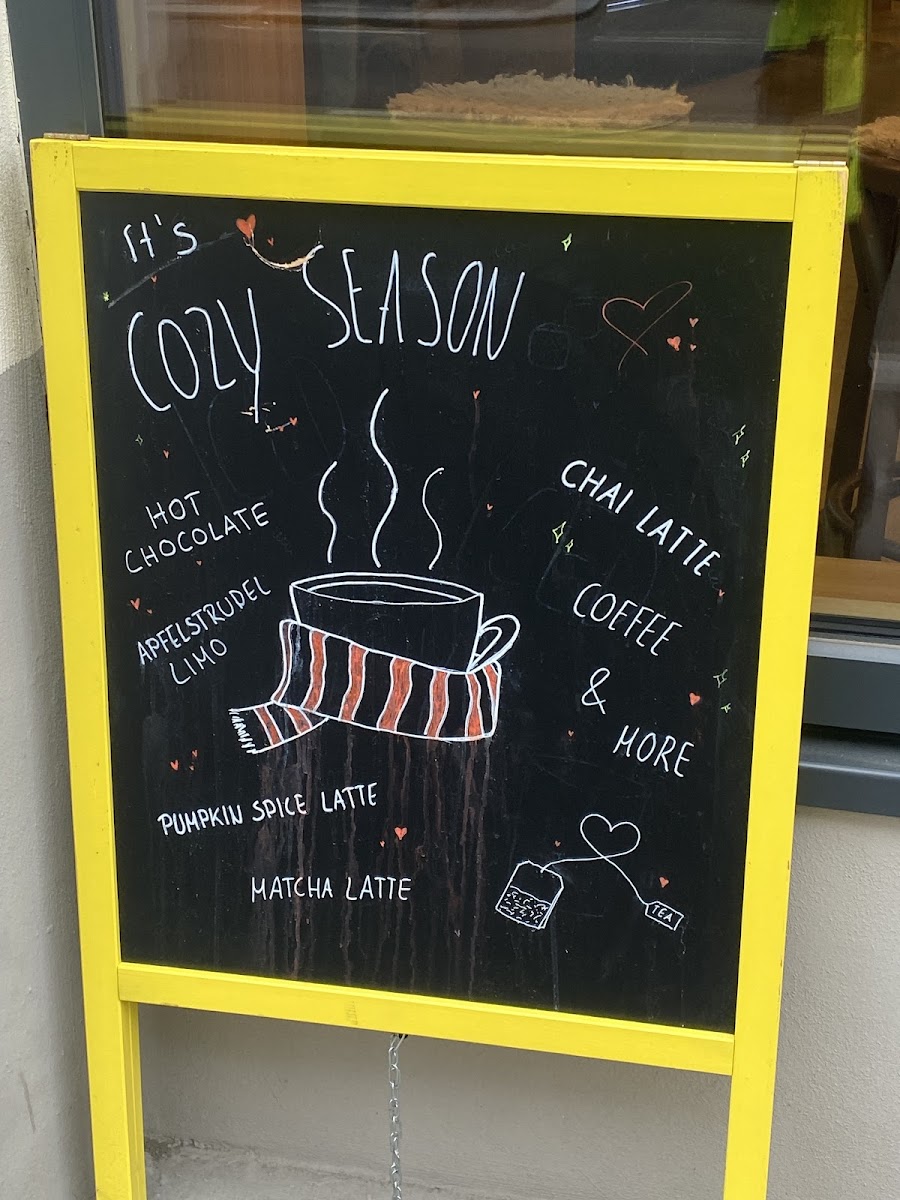 It's
COZY SEASON
HOT
CHOCOLATE
APFELSTRUDEL
LIMO
PUMPKIN SPICE LATTE
MATCHA LATTE
CHAI LATTE
COFFEE
&
MORE
TEA